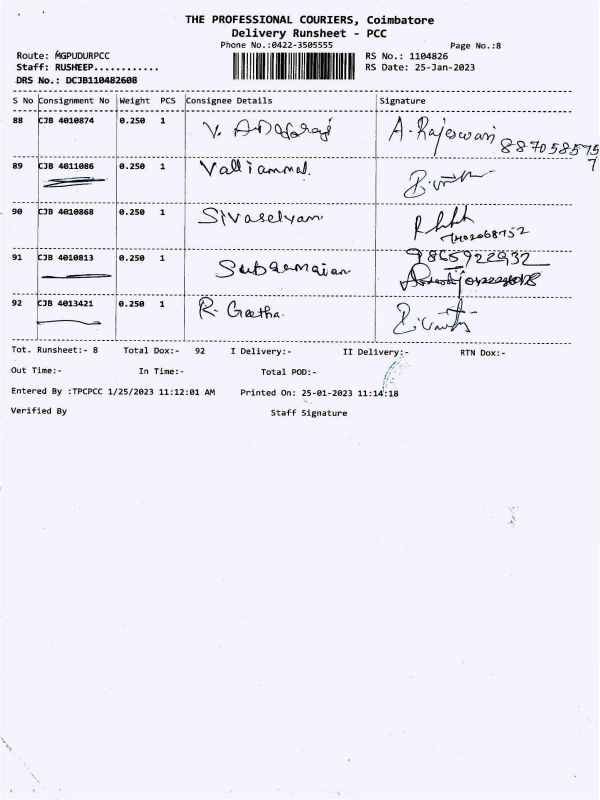 THE PROFESSIONAL COURIERS, Coimbatore
Delivery Runsheet - PCC
Phone No.:0422-3505555
Page No.:8
Route: MGPUDURPCC
RS No.: 1104826
Staff: RUSHEEP............
RS Date: 25-Jan-2023
DRS No.: DCJB110482608
S No Consignment No Weight PCS Consignee Details Signature
88 CJB 4010874 0.250 1 V. A. Rajeswari 887058575
7
89 CJB 4011086 0.250 1 Valliammal.
90 CJB 4010868 0.250 1 Sivaselvam
91 CJB 4010813 0.250 1 Subramaian 9865922932
92 CJB 4013421 0.250 1 R. Geetha.
Tot. Runsheet:- 8 Total Dox:- 92 I Delivery:- II Delivery:- RTN Dox:-
Out Time:- In Time:- Total POD:-
Entered By :TPCPCC 1/25/2023 11:12:01 AM Printed On: 25-01-2023 11:14:18
Verified By Staff Signature